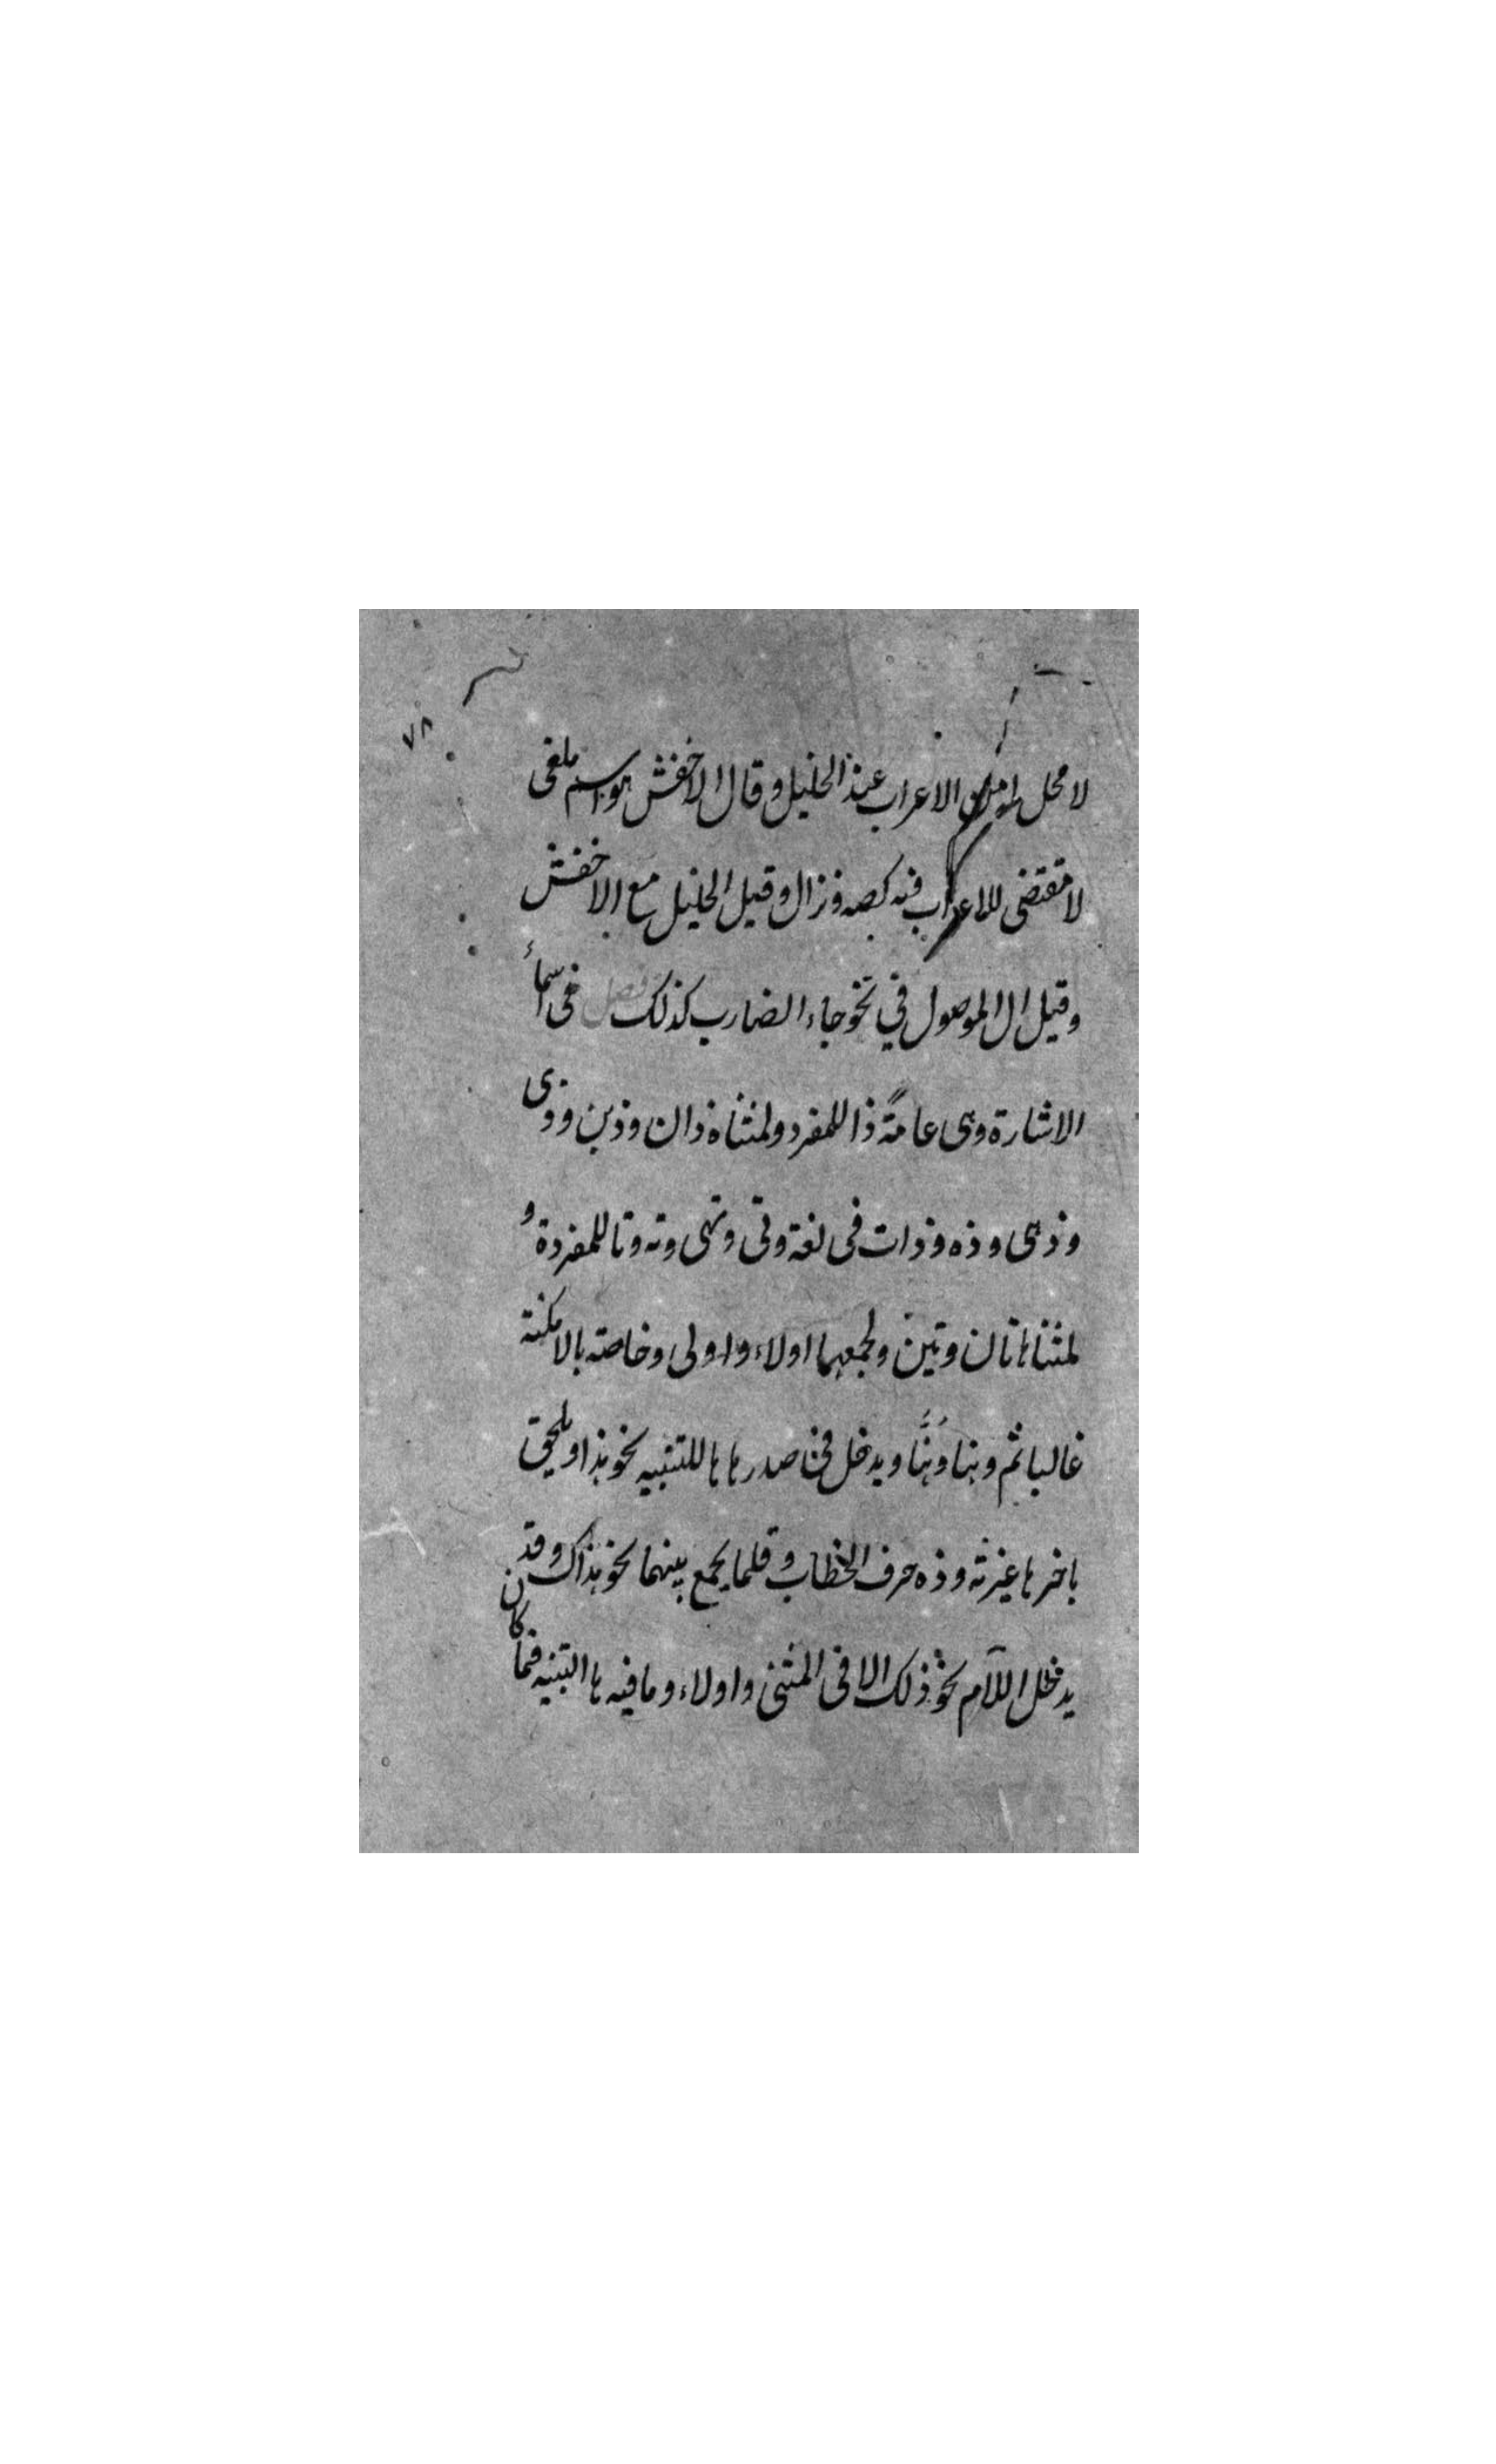 ٧٨
لا محل له من الاعراب عند الخليل وقال الاخفش هو اسم ملغى
لا مقتضى للاعراب فيه كصه ونزال وقيل الخليل مع الاخفش
وقيل ال الموصول في نحو جاء الضارب كذلك فصل فى اسمأ
الاشارة وهى عامة ذا للمفرد ولمثناه ذان وذين وذى
وذهى وذه وذات فى لغة وتى وتهى وته وتا للمفردة و
لمثناها تان وتين ولجمعهما اولاء واولى وخاصة بالامكنة
غالبا ثم وهنا وهنّا ويدخل فى صدرها ها للتنبيه نحو هذا ويلحق
باخرها غير ثم وذه حرف الخطاب وقلما يجمع بينهما نحو هذاك وقد
يدخل اللآم نحو ذلك الا فى المثنى واولاء وما فيه ها التنبيه فما كان